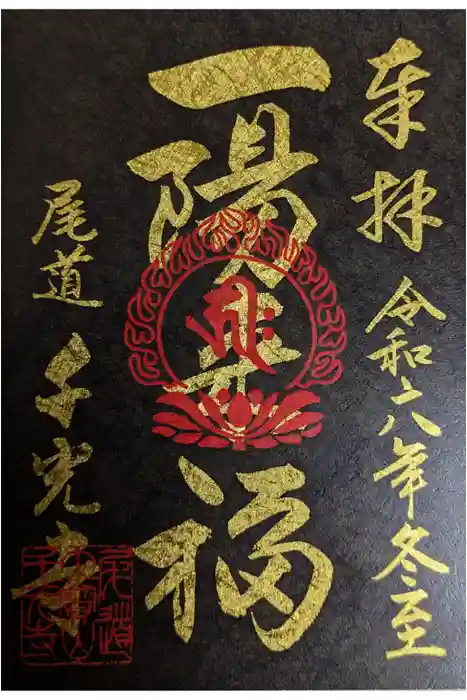 奉拝
令和六年冬至
一陽来福
尾道
千光寺
尾道
大寶山
千光寺